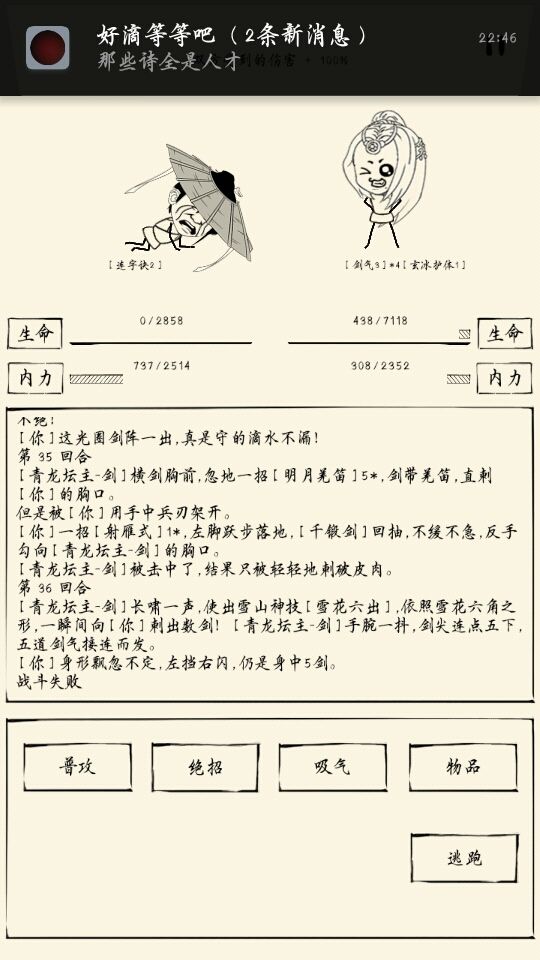 好滴等等吧（2条新消息）
22:46
那些诗全是人才
到的伤害 + 100%
[连字诀2]
[剑气3]*4[玄冰护体1]
生命
0/2858
438/7118
生命
内力
737/2514
308/2352
内力
不绝!
[你]这光圈剑阵一出,真是守的滴水不漏!
第 35 回合
[青龙坛主-剑]横剑胸前,忽地一招[明月羌笛]5*,剑带羌笛,直刺
[你]的胸口。
但是被[你]用手中兵刃架开。
[你]一招[射雁式]1*,左脚跃步落地,[千锻剑]回抽,不缓不急,反手
勾向[青龙坛主-剑]的胸口。
[青龙坛主-剑]被击中了,结果只被轻轻地刺破皮肉。
第 36 回合
[青龙坛主-剑]长啸一声,使出雪山神技[雪花六出],依照雪花六角之
形,一瞬间向[你]刺出数剑! [青龙坛主-剑]手腕一抖,剑尖连点五下,
五道剑气接连而发。
[你]身形飘忽不定,左挡右闪,仍是身中5剑。
战斗失败
普攻
绝招
吸气
物品
逃跑